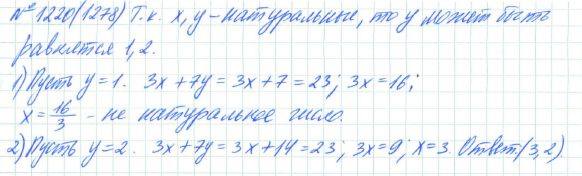 № 1220(1278) Т.к. x, y – натуральные, то y может быть
равняться 1, 2.
1) Пусть y = 1. 3x + 7y = 3x + 7 = 23; 3x = 16;
x = 16/3 – не натуральное число.
2) Пусть y = 2. 3x + 7y = 3x + 14 = 23; 3x = 9; x = 3. Ответ (3, 2).